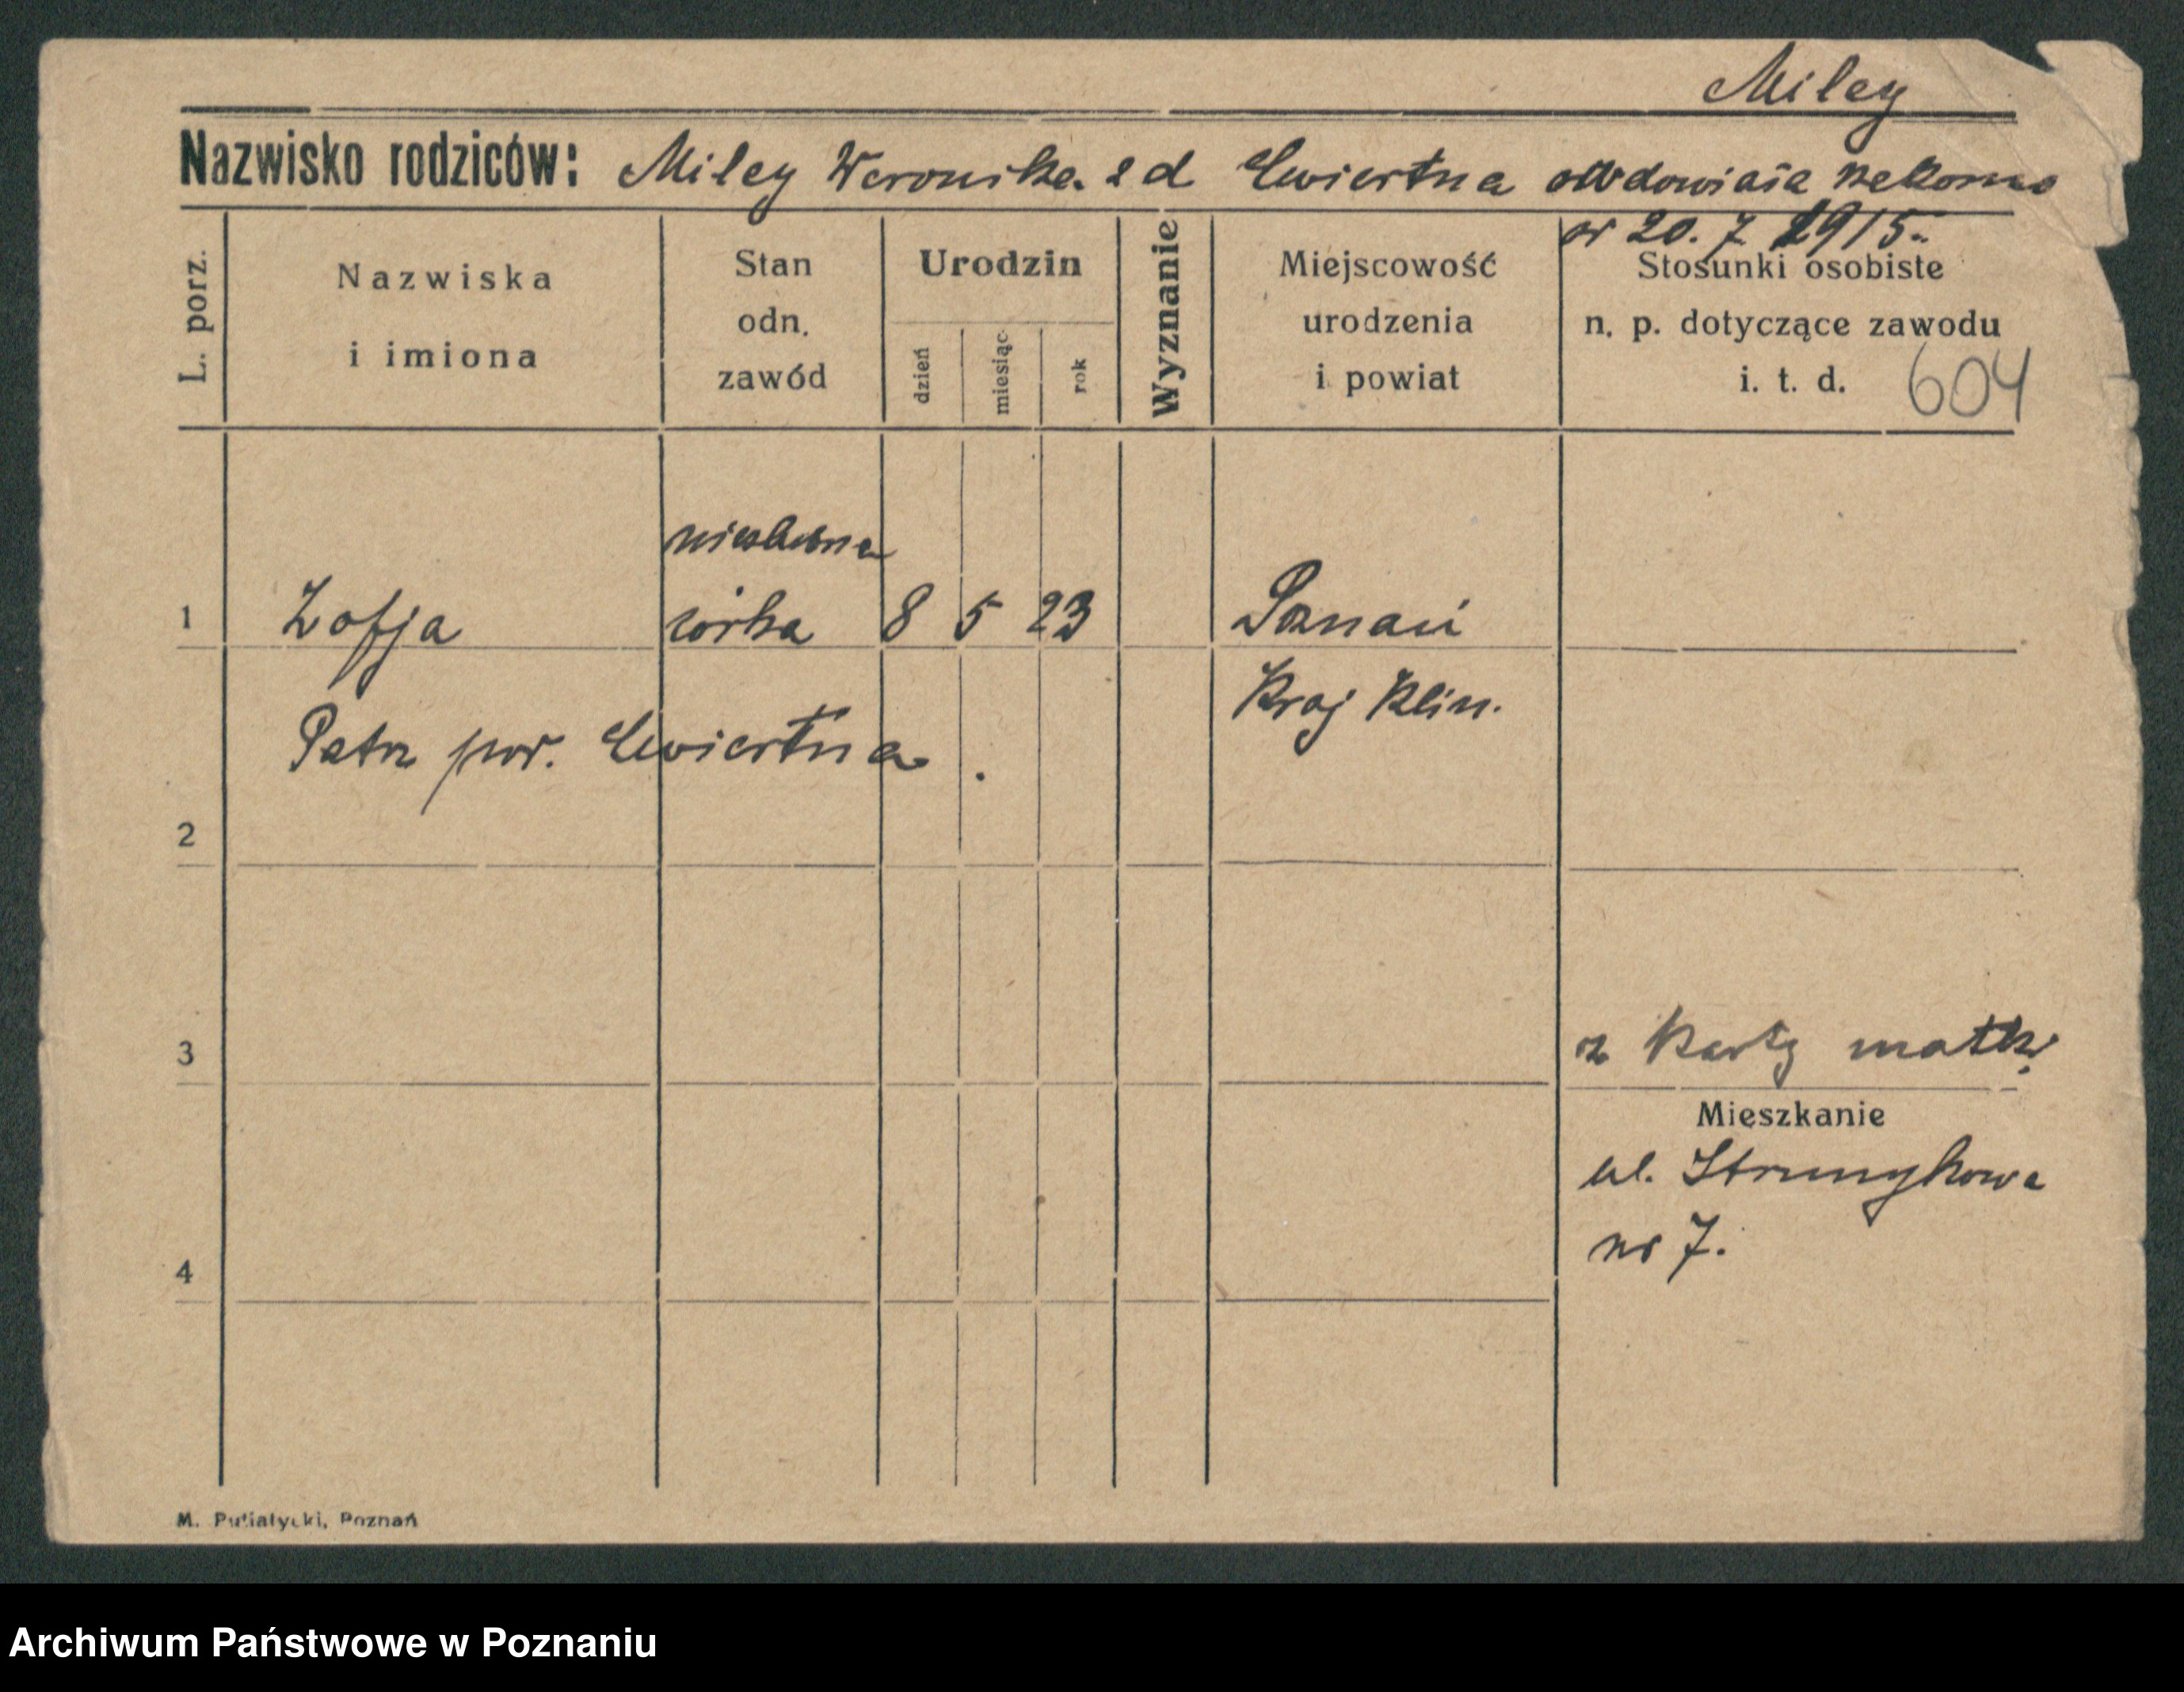 Miley
Nazwisko rodziców: Miley Weronika z d Ćwiertna owdowiała rzekomo
w 20. 7 1915.
L. porz.
Nazwiska
i imiona
Stan
odn.
zawód
Urodzin
dzień
miesiąc
rok
Wyznanie
Miejscowość
urodzenia
i powiat
Stosunki osobiste
n. p. dotyczące zawodu
i. t. d. 604
nieślubna
1 Zofja córka 8 5 23 Poznań
Kraj Klin.
Patrz por. Ćwiertna.
2
3
z Karty matki
Mieszkanie
ul. Strumykowa
nr 7.
4
M. Putiatycki, Poznań
Archiwum Państwowe w Poznaniu